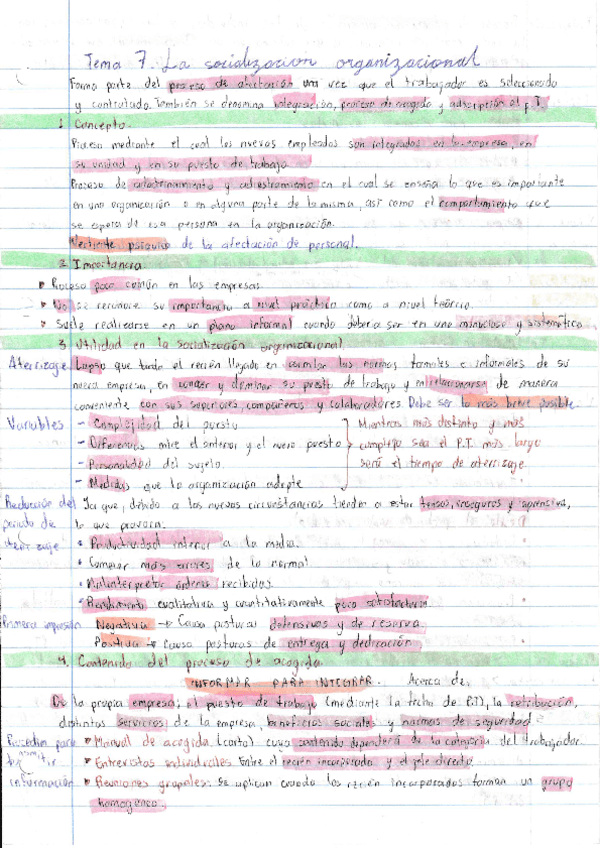 Tema 7. La socialización organizacional
Forma parte del proceso de afectación una vez que el trabajador es seleccionado
y contratado. También se denomina integración, proceso de acogida y adscripción al p.T.
1. Concepto.
Proceso mediante el cual los nuevos empleados son integrados en la empresa, en
su unidad y en su puesto de trabajo.
Proceso de adoctrinamiento y adiestramiento en el cual se enseña lo que es importante
en una organización o en alguna parte de la misma, así como el comportamiento que
se espera de esa persona en la organización.
Vertiente psíquica de la afectación de personal.
2. Importancia
Proceso poco común en las empresas
No se reconoce su importancia a nivel práctico como a nivel teórico.
Suele realizarse en un plano informal cuando debería ser en uno minucioso y sistemático
3. Utilidad en la socialización organizacional
Aterrizaje Lapso que tarda el recién llegado en asimilar las normas formales e informales de su
nueva empresa, en conocer y dominar su puesto de trabajo y en relacionarse de manera
conveniente con sus superiores, compañeros y colaboradores. Debe ser lo más breve posible.
Variables - Complejidad del puesto Mientras más distinto y más
- Diferencias entre el anterior y el nuevo puesto complejo sea el P.T. más largo
- Personalidad del sujeto será el tiempo de aterrizaje.
- Medidas que la organización adopte
Reducción del Ya que, debido a las nuevas circunstancias tienden a estar tensos, inseguros y aprensivos,
periodo de lo que provoca:
aterrizaje • Productividad inferior a la media.
• Cometer más errores de lo normal
• Malinterpretar órdenes recibidas
• Rendimiento cualitativa y cuantitativamente poco satisfactorio
Primera impresión Negativa → Causa posturas defensivas y de reserva.
Positiva → Causa posturas de entrega y dedicación
4. Contenido del proceso de acogida
INFORMAR PARA INTEGRAR. Acerca de:
De la propia empresa; el puesto de trabajo (mediante la ficha de P.T), la retribución,
distintos servicios de la empresa, beneficios sociales y normas de seguridad
Procedim para Manual de acogida (carta) cuyo contenido dependerá de la categoría del trabajador.
transmitir Entrevistas individuales Entre el recién incorporado y el jefe directo.
información Reuniones grupales: se aplican cuando los recién incorporados forman un grupo
homogéneo.